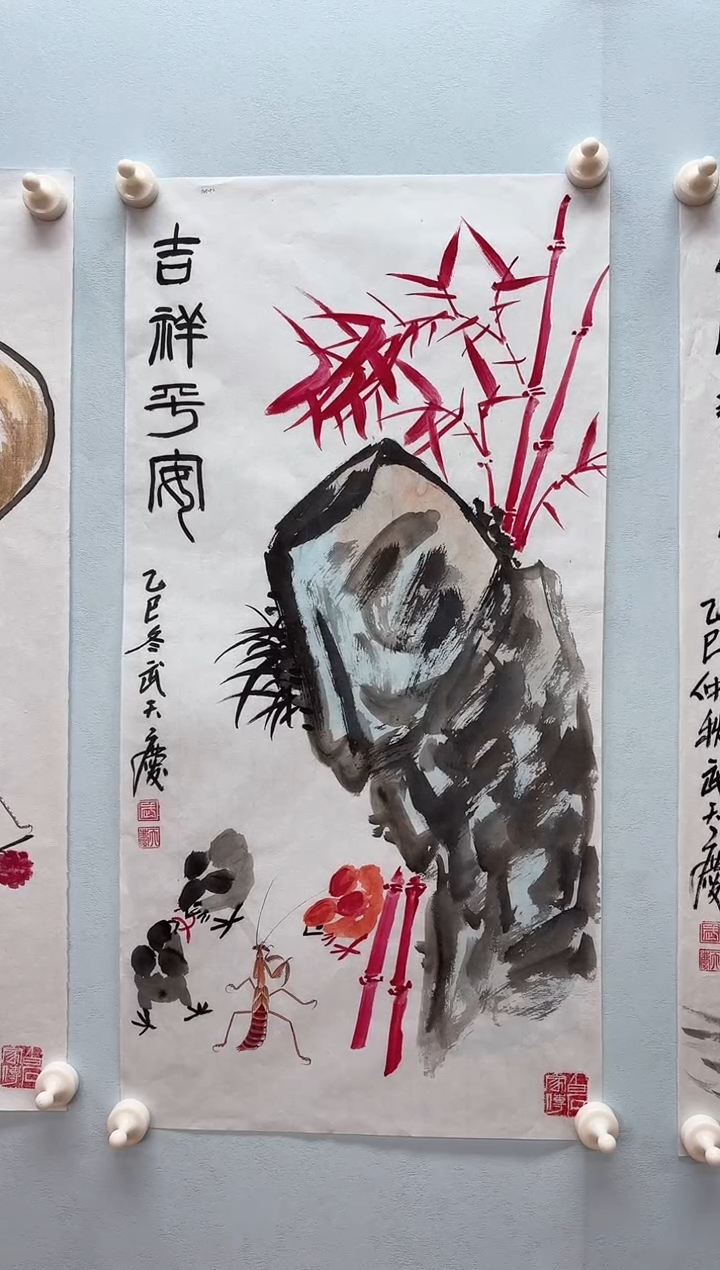 吉祥平安
乙巳冬武天慶
乙巳仲秋武天慶